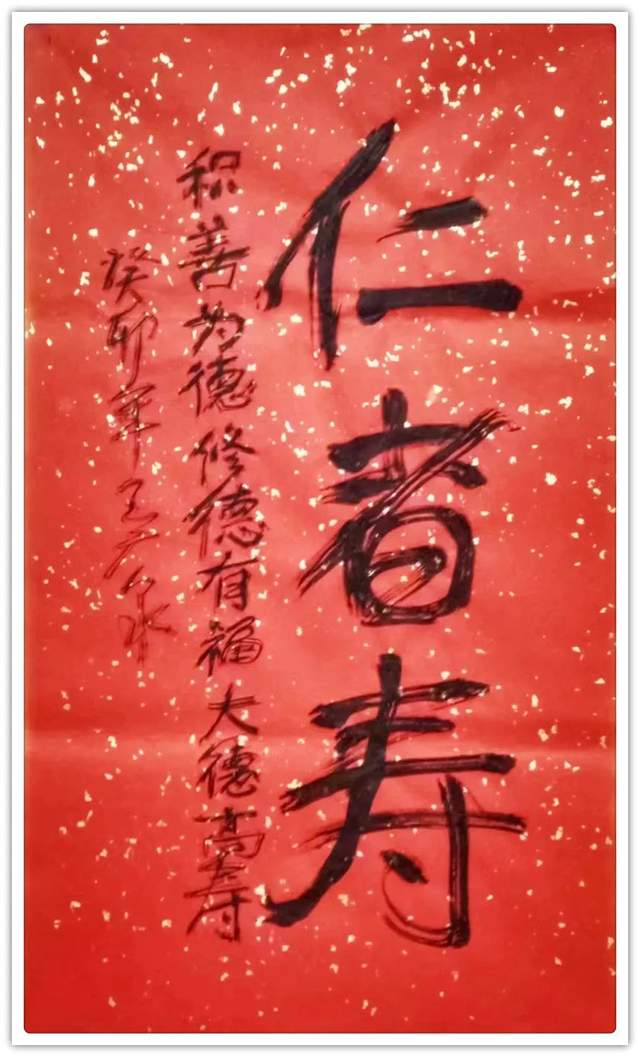 仁者寿
积善为德修德有福大德高寿
癸卯年